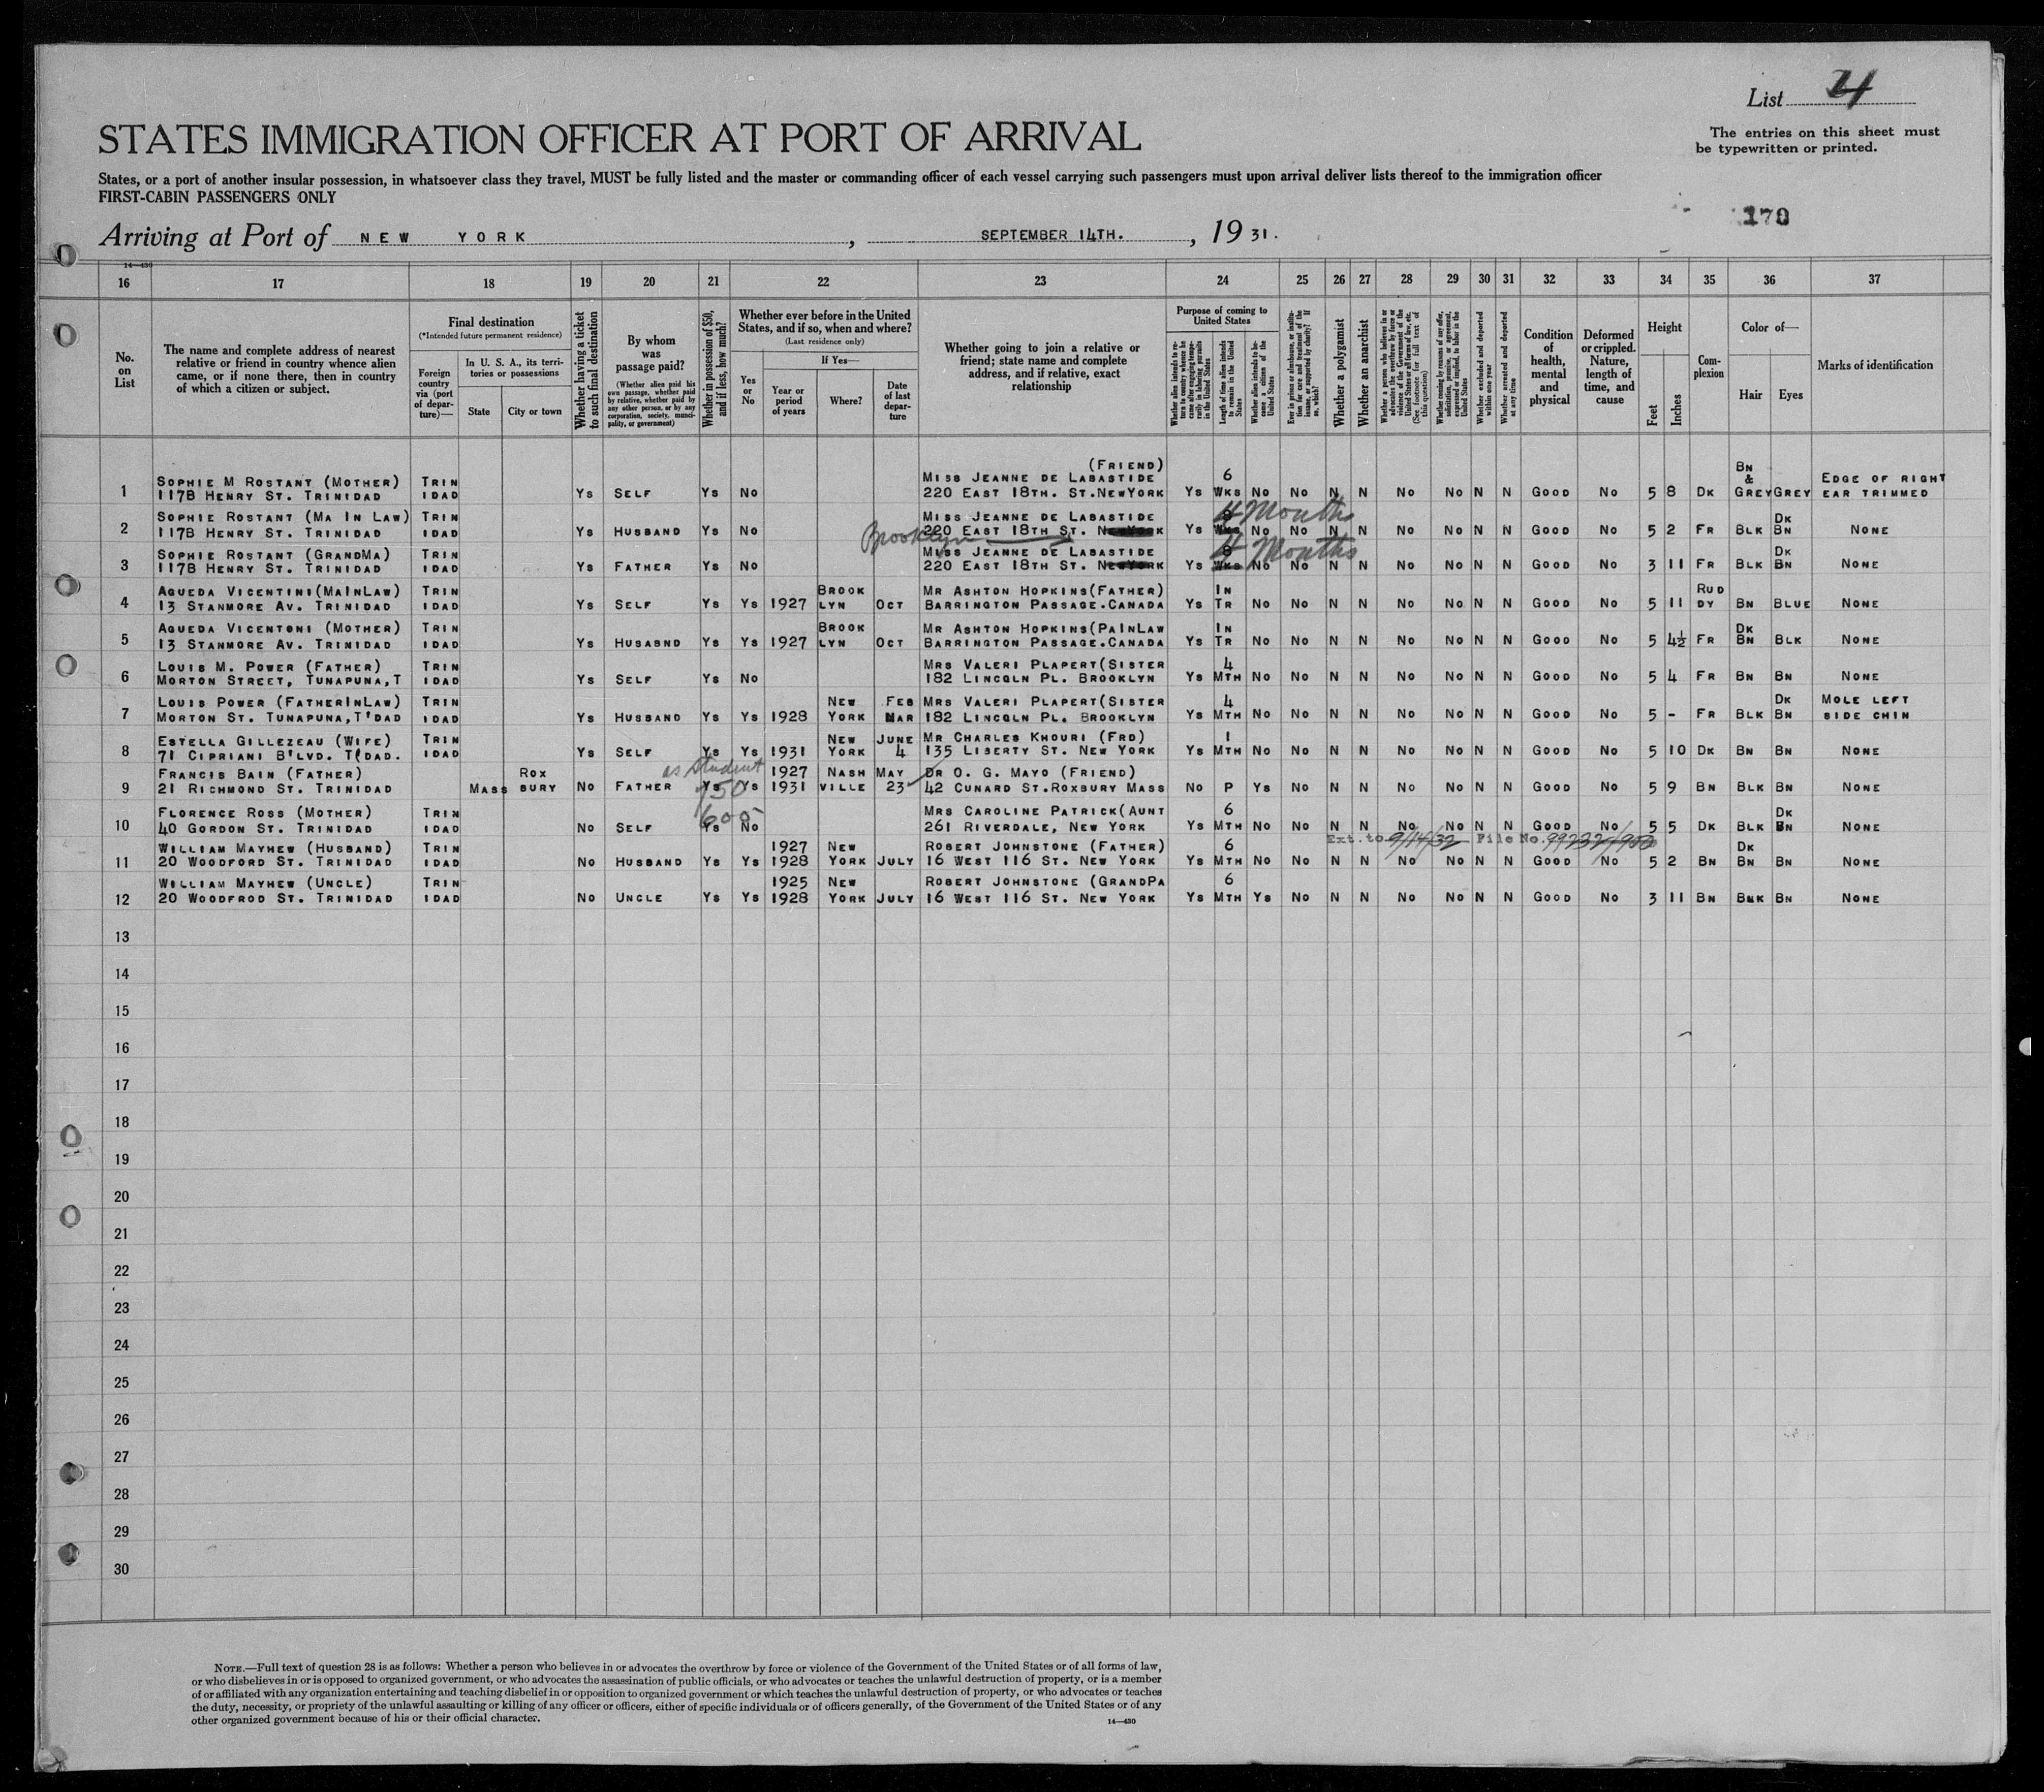 List 4
STATES IMMIGRATION OFFICER AT PORT OF ARRIVAL
The entries on this sheet must
be typewritten or printed.
States, or a port of another insular possession, in whatsoever class they travel, MUST be fully listed and the master or commanding officer of each vessel carrying such passengers must upon arrival deliver lists thereof to the immigration officer
FIRST-CABIN PASSENGERS ONLY
178
Arriving at Port of NEW YORK, SEPTEMBER 14TH., 1931.
14—430
16 17 18 19 20 21 22 23 24 25 26 27 28 29 30 31 32 33 34 35 36 37
No. on List
The name and complete address of nearest relative or friend in country whence alien came, or if none there, then in country of which a citizen or subject.
Final destination
(*Intended future permanent residence)
Foreign country via (port of departure)—
In U. S. A., its territories or possessions
State
City or town
Whether having a ticket to such final destination
By whom was passage paid?
(Whether alien paid his own passage, whether paid by relative, whether paid by any other person, or by any corporation, society, municipality, or government)
Whether in possession of $50, and if less, how much?
Whether ever before in the United States, and if so, when and where?
(Last residence only)
Yes or No
If Yes—
Year or period of years
Where?
Date of last departure
Whether going to join a relative or friend; state name and complete address, and if relative, exact relationship
Purpose of coming to United States
Whether alien intends to return to country whence he came after engaging temporarily in laboring pursuits in the United States
Length of time alien intends to remain in the United States
Whether alien intends to become a citizen of the United States
Ever in prison or almshouse, or institution for care and treatment of the insane, or supported by charity? If so, which?
Whether a polygamist
Whether an anarchist
Whether a person who believes in or advocates the overthrow by force or violence of the Government of the United States or all forms of law, etc. (See footnote for full text of this question)
Whether coming by reasons of any offer, solicitation, promise, or agreement, expressed or implied, to labor in the United States
Whether excluded and deported within one year
Whether arrested and deported at any time
Condition of health, mental and physical
Deformed or crippled. Nature, length of time, and cause
Height
Feet
Inches
Complexion
Color of—
Hair
Eyes
Marks of identification
1 SOPHIE M ROSTANT (MOTHER) 117B HENRY ST. TRINIDAD TRINIDAD Ys SELF Ys No MISS JEANNE DE LABASTIDE (FRIEND) 220 EAST 18TH. ST. NEWYORK Ys 6 WKS No No N N No No N N GOOD No 5 8 DK BN & GREY GREY EDGE OF RIGHT EAR TRIMMED
2 SOPHIE ROSTANT (MA IN LAW) 117B HENRY ST. TRINIDAD TRINIDAD Ys HUSBAND Ys No Brooklyn MISS JEANNE DE LABASTIDE 220 EAST 18TH ST. NEWYORK Ys 8 WKS 4 Months No No N N No No N N GOOD No 5 2 FR BLK DK BN NONE
3 SOPHIE ROSTANT (GRANDMA) 117B HENRY ST. TRINIDAD TRINIDAD Ys FATHER Ys No MISS JEANNE DE LABASTIDE 220 EAST 18TH ST. NEWYORK Ys 8 WKS 4 Months No No N N No No N N GOOD No 3 11 FR BLK DK BN NONE
4 AGUEDA VICENTINI(MAINLAW) 13 STANMORE AV. TRINIDAD TRINIDAD Ys SELF Ys Ys 1927 BROOKLYN OCT MR ASHTON HOPKINS(FATHER) BARRINGTON PASSAGE.CANADA Ys IN TR No No N N No No N N GOOD No 5 11 RUDDY BN BLUE NONE
5 AGUEDA VICENTONI (MOTHER) 13 STANMORE AV. TRINIDAD TRINIDAD Ys HUSABND Ys Ys 1927 BROOKLYN OCT MR ASHTON HOPKINS(PAINLAW BARRINGTON PASSAGE.CANADA Ys IN TR No No N N No No N N GOOD No 5 4½ FR DK BN BLK NONE
6 LOUIS M. POWER (FATHER) MORTON STREET, TUNAPUNA,T TRINIDAD Ys SELF Ys No MRS VALERI PLAPERT(SISTER 182 LINCOLN PL. BROOKLYN Ys 4 MTH No No N N No No N N GOOD No 5 4 FR BN BN NONE
7 LOUIS POWER (FATHERINLAW) MORTON ST. TUNAPUNA,T'DAD TRINIDAD Ys HUSBAND Ys Ys 1928 NEW YORK FEB MAR MRS VALERI PLAPERT(SISTER 182 LINCOLN PL. BROOKLYN Ys 4 MTH No No N N No No N N GOOD No 5 - FR BLK DK BN MOLE LEFT SIDE CHIN
8 ESTELLA GILLEZEAU (WIFE) 71 CIPRIANI B'LVD. T(DAD. TRINIDAD Ys SELF Ys Ys 1931 NEW YORK JUNE 4 MR CHARLES KHOURI (FRD) 135 LIBERTY ST. NEW YORK Ys 1 MTH No No N N No No N N GOOD No 5 10 DK BN BN NONE
9 FRANCIS BAIN (FATHER) 21 RICHMOND ST. TRINIDAD MASS ROXBURY No FATHER as student Ys 150 Ys 1927 1931 NASHVILLE MAY 23 DR O. G. MAYO (FRIEND) 42 CUNARD ST.ROXBURY MASS No P Ys No N N No No N N GOOD No 5 9 BN BLK BN NONE
10 FLORENCE ROSS (MOTHER) 40 GORDON ST. TRINIDAD TRINIDAD No SELF 600 Ys No MRS CAROLINE PATRICK(AUNT 261 RIVERDALE, NEW YORK Ys 6 MTH No No N N No No N N GOOD No 5 5 DK BLK DK BN NONE
Ext. to 9/14/32 File No. 99232/900
11 WILLIAM MAYHEW (HUSBAND) 20 WOODFORD ST. TRINIDAD TRINIDAD No HUSBAND Ys Ys 1927 1928 NEW YORK JULY ROBERT JOHNSTONE (FATHER) 16 WEST 116 ST. NEW YORK Ys 6 MTH No No N N No No N N GOOD No 5 2 BN DK BN BN NONE
12 WILLIAM MAYHEW (UNCLE) 20 WOODFROD ST. TRINIDAD TRINIDAD No UNCLE Ys Ys 1925 1928 NEW YORK JULY ROBERT JOHNSTONE (GRANDPA 16 WEST 116 ST. NEW YORK Ys 6 MTH Ys No N N No No N N GOOD No 3 11 BN BNK BN NONE
13
14
15
16
17
18
19
20
21
22
23
24
25
26
27
28
29
30
NOTE.—Full text of question 28 is as follows: Whether a person who believes in or advocates the overthrow by force or violence of the Government of the United States or of all forms of law,
or who disbelieves in or is opposed to organized government, or who advocates the assassination of public officials, or who advocates or teaches the unlawful destruction of property, or is a member
of or affiliated with any organization entertaining and teaching disbelief in or opposition to organized government or which teaches the unlawful destruction of property, or who advocates or teaches
the duty, necessity, or propriety of the unlawful assaulting or killing of any officer or officers, either of specific individuals or of officers generally, of the Government of the United States or of any
other organized government because of his or their official character.
14—430